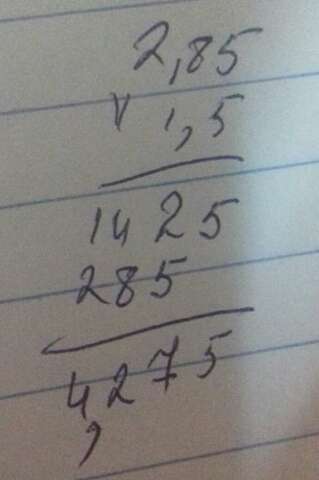 2,85
x 1,5
1425
285
4,275